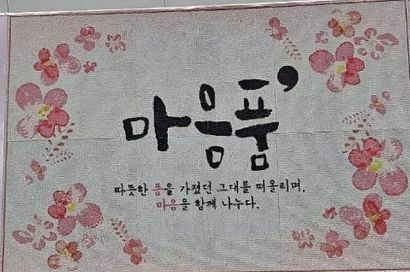 마음품’
따뜻한 품을 가졌던 그대를 떠올리며,
마음을 함께 나누다.